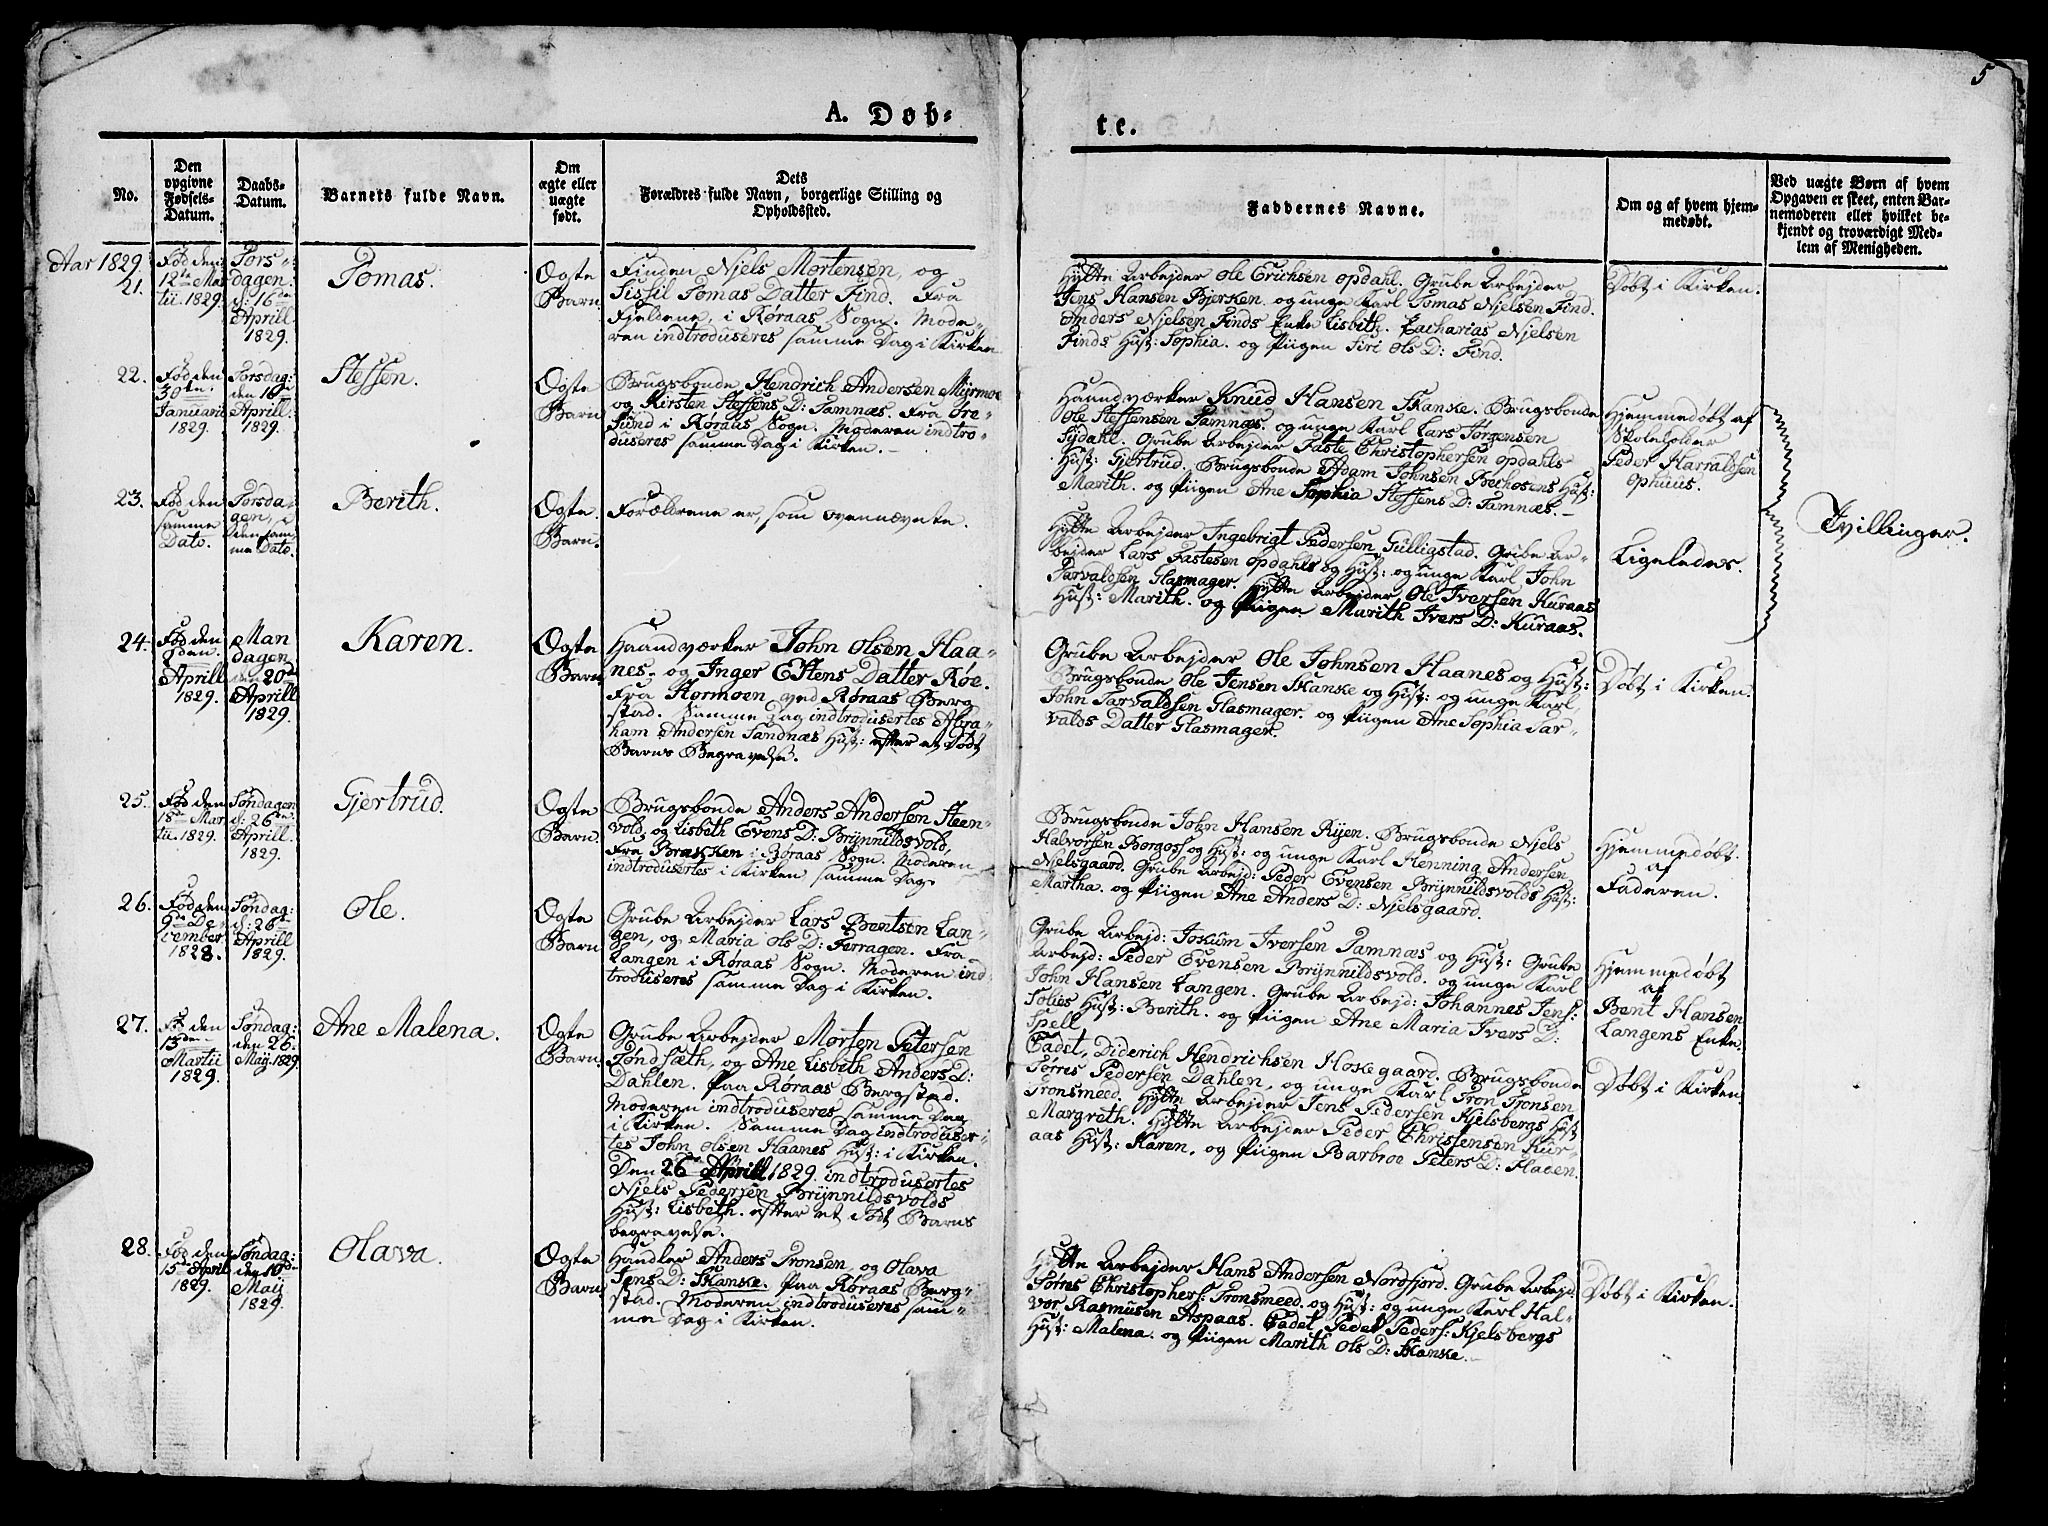 5
A. Døb-
te.
No.
Den
opgivne
Fødsels-
Datum.
Daabs-
Datum.
Barnets fulde Navn.
Om
ægte eller
uægte
født.
Dets
Forældres fulde Navn, borgerlige Stilling og
Opholdssted.
Faddernes Navne.
Om og af hvem hjem-
medøbt.
Ved uægte Børn af hvem
Opgaven er skeet, enten Bar-
nemoderen eller hvilket be-
kjendt og troværdigt Med-
lem af Menigheden.
Aar 1829.
21.
Fød den
12te Mar
tii 1829.
Tors-
dagen
d: 16de
Aprill
1829.
Tomas.
Ægte
Barn
Finden Njels Mortensen, og
Sissil Tomas Datter Find. Fra
Fjeldene, i Røraas Sogn. Mode-
ren indtroduseres samme Dag i Kirken
Hytte Arbejder Ole Erichsen Opdahl. Grube Arbejder
Jens Hansen Bjerken. og unge Karl Tomas Njelsen Find.
Anders Njelsen Finds Enke Lisbith. Zacharias Njelsen
Finds Hust: Sophia. og Piigen Siri Ols D: Find.
Døbt i Kirken.
22.
Fød den
30te
Januarii
1829.
Torsdag:
den 16
Aprill:
1829.
Steffen.
Ægte
Barn
Brugsbonde Hendrich Andersen Myrmoe
og Kirsten Steffens D: Tamnæs. Fra Øre-
sund i Røraas Sogn. Moderen indtro-
duseres samme Dag i Kirken.
Haandværker Knud Hansen Skanke. Brugsbonde
Ole Steffensen Tamnæs. og unge Karl Lars Jørgensen
Sydahl. Grube Arbejder Faste Christophersen Opdahls
Hust: Gjertrud. Brugsbonde Adam Johnsen Bechosens Hust:
Marith. og Piigen Ane Sophia Steffens D: Tamnæs.
Hjemmedøbt af
Skoleholder
Peder Harraldsen
Ophuus.
23.
Fød den
samme
Dato.
Torsda-
gen,
den sam-
me Dato
Berith.
Ægte.
Barn.
Forældrene er, som ovennævnte.
Hytte Arbejder Ingebrigt Pedersen Gulligstad. Grube Ar-
bejder Lars Fastesen Opdahls og Hust: og unge Karl John
Tarvaldsen Glasmager. Hytte Arbejder Ole Iversen Kuraas
Hust: Marith. og Piigen Marith Ivers D: Kuraas.
Ligeledes.
Tvillinger.
24.
Fød den
8den
Aprill
1829.
Man
dagen
den 20de
Aprill
1829.
Karen.
Ægte
Barn
Haandværker John Olsen Haa-
nes. og Inger Estens Datter Røe.
Fra Kormoen ved Røraas Berg
stad. Samme Dag indtrodusertes Abra-
ham Andersen Sandnæs Hust: efter et Dødt
Barns Begravelse.
Grube Arbejder Ole Johnsen Haanes og Hust:
Brugsbonde Ole Jensen Skanke og Hust: og unge Karl
John Tarvaldsen Glasmager. og Piigen Ane Sophia Tar-
valds Datter Glasmager.
Døbt i Kirken.
25.
Fød den
18de Mar
tii 1829.
Søndagen
d: 26de
Aprill.
1829.
Gjertrud.
Ægte
Barn
Brugsbonde Anders Andersen Steen-
vold, og Lisbeth Evens D: Brynnildsvold,
Fra Brækken i Røraas Sogn. Moderen
indtrodusertes i Kirken samme Dag.
Brugsbonde John Hansen Ryen. Brugsbonde Njels
Halvorsen Borgos og Hust: og unge Karl Henning Andersen
Njelsgaard. Grube Arbejd: Peder Evensen Brynnildsvolds Hust:
Martha. og Piigen Ane Anders D: Njelsgaard.
Hjemmedøbt.
af
Faderen.
26.
Fød den
9de De-
cember
1828.
Søndag:
d: 26de
Aprill
1829.
Ole.
Ægte
Barn
Grube Arbejder Lars Bentsen Lan-
gen, og Maria Ols D: Ferragen. Fra
Langen i Røraas Sogn. Moderen ind
troduseres samme Dag i Kirken.
Grube Arbejd: Jokum Iversen Tamnæs og Hust: Grube
Arbejd: Peder Evensen Brynnildsvold. og unge Karl
John Hansen Langen. Grube Arbejd: Johannes Jens:
Solies Hust: Berith. og Piigen Ane Maria Ivers D:
Spell
Hjemmedøbt
af
Bent Hansen
Langens Enke.
27.
Fød den
13den
Martii
1829.
Søndag:
den 26.
May. 1829.
Ane Malena.
Ægte
Barn
Grube Arbejder Morten Petersen
Tøndsæth, og Ane Lisbith Anders D:
Dahlen. Paa Røraas Bergstad.
Moderen indtroduseres samme Dag
i Kirken. Samme Dag indtroduser-
tes John Olsen Haanes Hust: i Kirken.
Den 26 Aprill 1829. indtrodusertes
Njels Pedersen Brynnildsvolds
Hust: Lisbeth. efter et Dødt Barns
begravelse.
Cadet, Diderich Hendrichsen Hoxegaard. Brugsbonde
Tørres Pedersen Dahlen, og unge Karl Tron Tronsen
Tronsmeed. Hytte Arbejder Jens Pedersen Kjelsbergs Hust
Margreth. Hytte Arbejder Peder Christensen Kur-
aas Hust: Karen. og Piigen Barbroe Peters D: Hagen.
Døbt i Kirken.
28.
Fød den
15de April
1829.
Søndag:
den 10de
May
1829.
Olava.
Ægte
Barn
Handler Anders Tronsen, og Olava
Jens D: Skanke. Paa Røraas Berg-
stad. Moderen indtroduseres sam-
me Dag i Kirken.
Hytte Arbejder Hans Andersen Nordfjord. Grube Arbejd.
Tørres Christophers: Tronsmeed. og Hust: og unge Karl Hal-
vor Rasmusen Aspaas. Cadet Peder Peders: Kjelsbergs
Hust: Malena. og Piigen Marith Ols D: Skanke.
Døbt i Kirken.